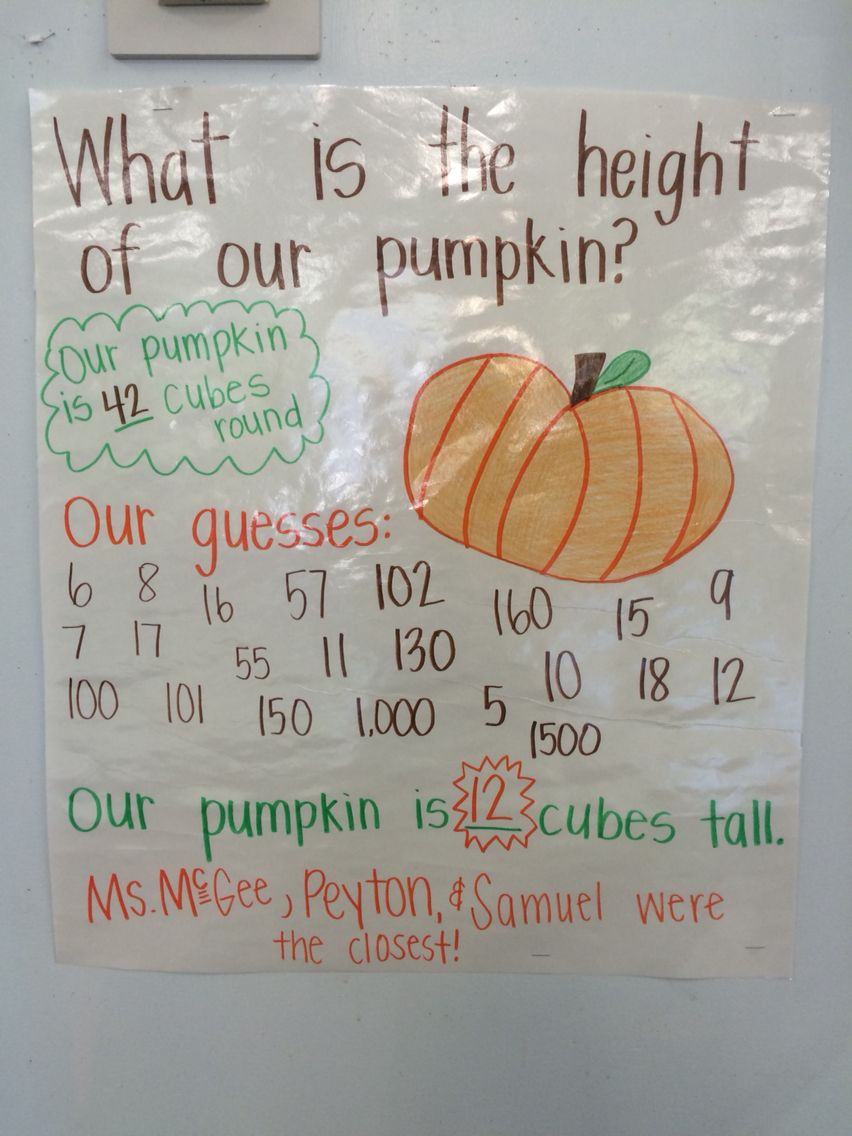 What is the height
of our pumpkin?
Our pumpkin
is 42 cubes
round
Our guesses:
6 8 16 57 102 160 15 9
7 17 55 11 130 10 18 12
100 101 150 1,000 5 1500
Our pumpkin is 12 cubes tall.
Ms. McGee, Peyton, & Samuel were
the closest!